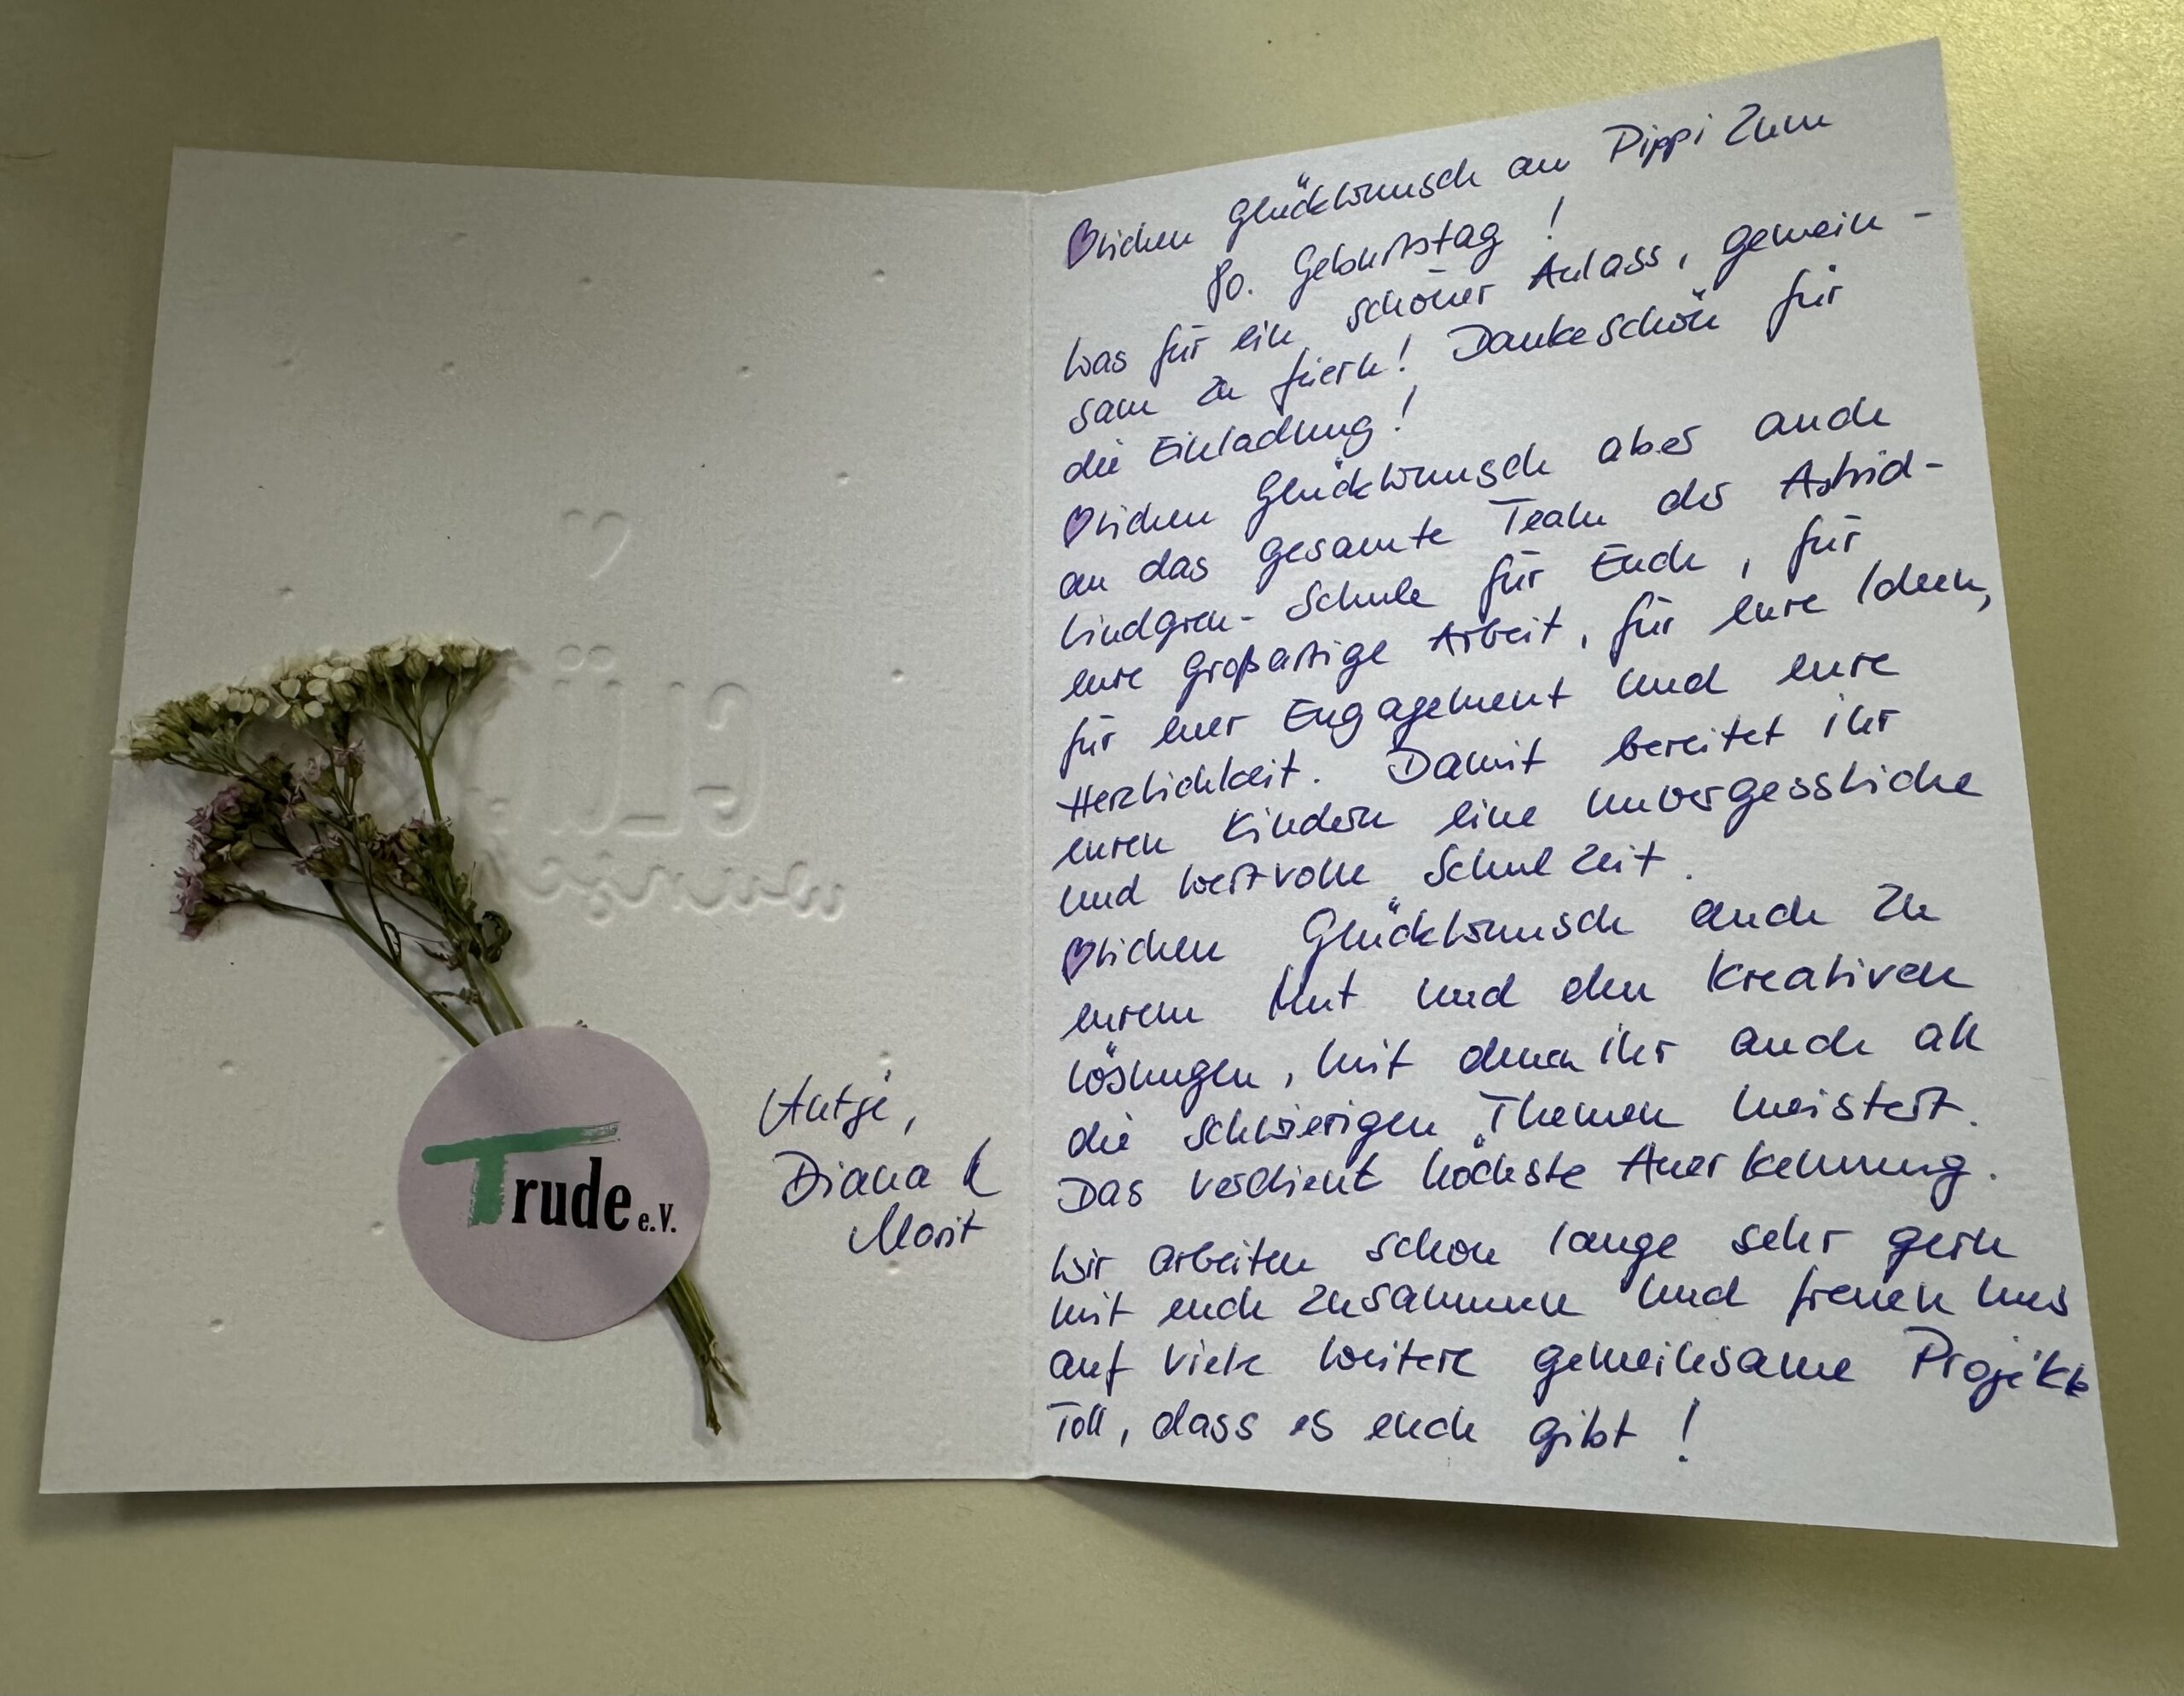 Trude e.V.
Antje,
Diana &
Marit
♡lichen Glückwunsch an Pippi zum
80. Geburtstag!
Was für ein schöner Anlass, gemein-
sam zu feiern! Dankeschön für
die Einladung!
♡lichen Glückwunsch aber auch
an das gesamte Team der Astrid-
Lindgren-Schule für Euch, für
eure großartige Arbeit, für eure Ideen,
für euer Engagement und eure
Herzlichkeit. Damit bereitet ihr
euren Kindern eine unvergessliche
und wertvolle Schulzeit.
♡lichen Glückwunsch auch zu
eurem Mut und den kreativen
Lösungen, mit denen ihr auch all
die schwierigen Themen meistert.
Das verdient höchste Anerkennung.
Wir arbeiten schon lange sehr gern
mit euch zusammen und freuen uns
auf viele weitere gemeinsame Projekte
Toll, dass es euch gibt!